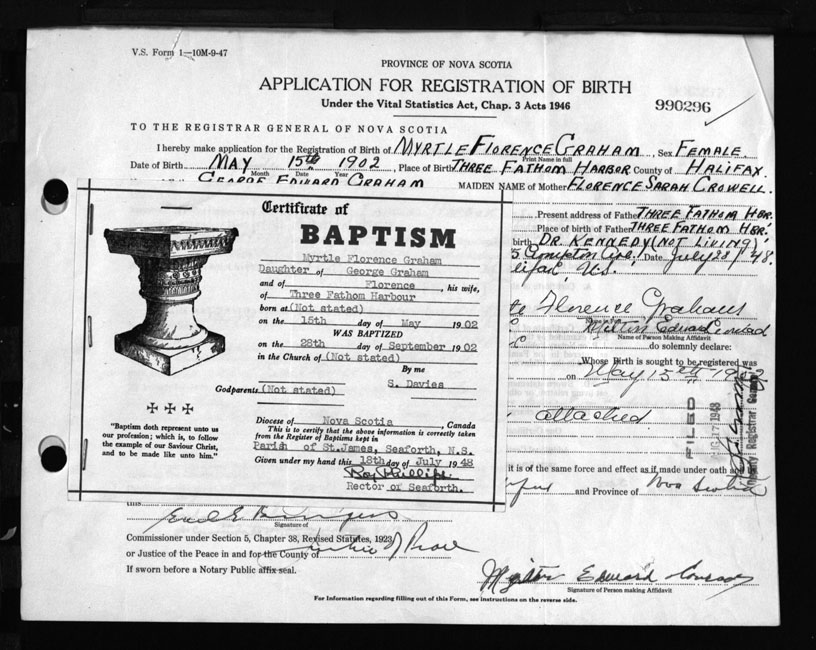 V.S. Form 1—10M-9-47
PROVINCE OF NOVA SCOTIA
APPLICATION FOR REGISTRATION OF BIRTH
Under the Vital Statistics Act, Chap. 3 Acts 1946
990296
TO THE REGISTRAR GENERAL OF NOVA SCOTIA
I hereby make application for the Registration of Birth of MYRTLE FLORENCE GRAHAM, Sex FEMALE.
Print Name in full
Date of Birth MAY 15th 1902, Place of Birth THREE FATHOM HARBOR County of HALIFAX.
Month Date Year
GEORGE EDWARD GRAHAM MAIDEN NAME of Mother FLORENCE SARAH CROWELL.
Present address of Father THREE FATHOM HBR.
Place of birth of Father THREE FATHOM HBR.
birth DR. KENNEDY (NOT LIVING)
Date July 23/48.
Florence Graham
Name of Person Making Affidavit
do solemnly declare:
Whose Birth is sought to be registered was
on May 15th 1902
attached
it is of the same force and effect as if made under oath and
and Province of Nova Scotia
FILED
1948
Deputy Registrar General
Certificate of
BAPTISM
Myrtle Florence Graham
Daughter of George Graham
and of Florence, his wife,
of Three Fathom Harbour
born at (Not stated)
on the 15th day of May 1902
WAS BAPTIZED
on the 28th day of September 1902
in the Church of (Not stated)
By me
S. Davies
Godparents (Not stated)
Diocese of Nova Scotia, Canada
This is to certify that the above information is correctly taken
from the Register of Baptisms kept in
Parish of St.James, Seaforth, N.S.
Given under my hand this 18th day of July 1948
Roy Phillips
Rector of Seaforth.
"Baptism doth represent unto us
our profession; which is, to follow
the example of our Saviour Christ,
and to be made like unto him."
Signature of
Commissioner under Section 5, Chapter 38, Revised Statutes, 1923
or Justice of the Peace in and for the County of
If sworn before a Notary Public affix seal.
Edward
Signature of Person making Affidavit
For Information regarding filling out of this Form, see instructions on the reverse side.